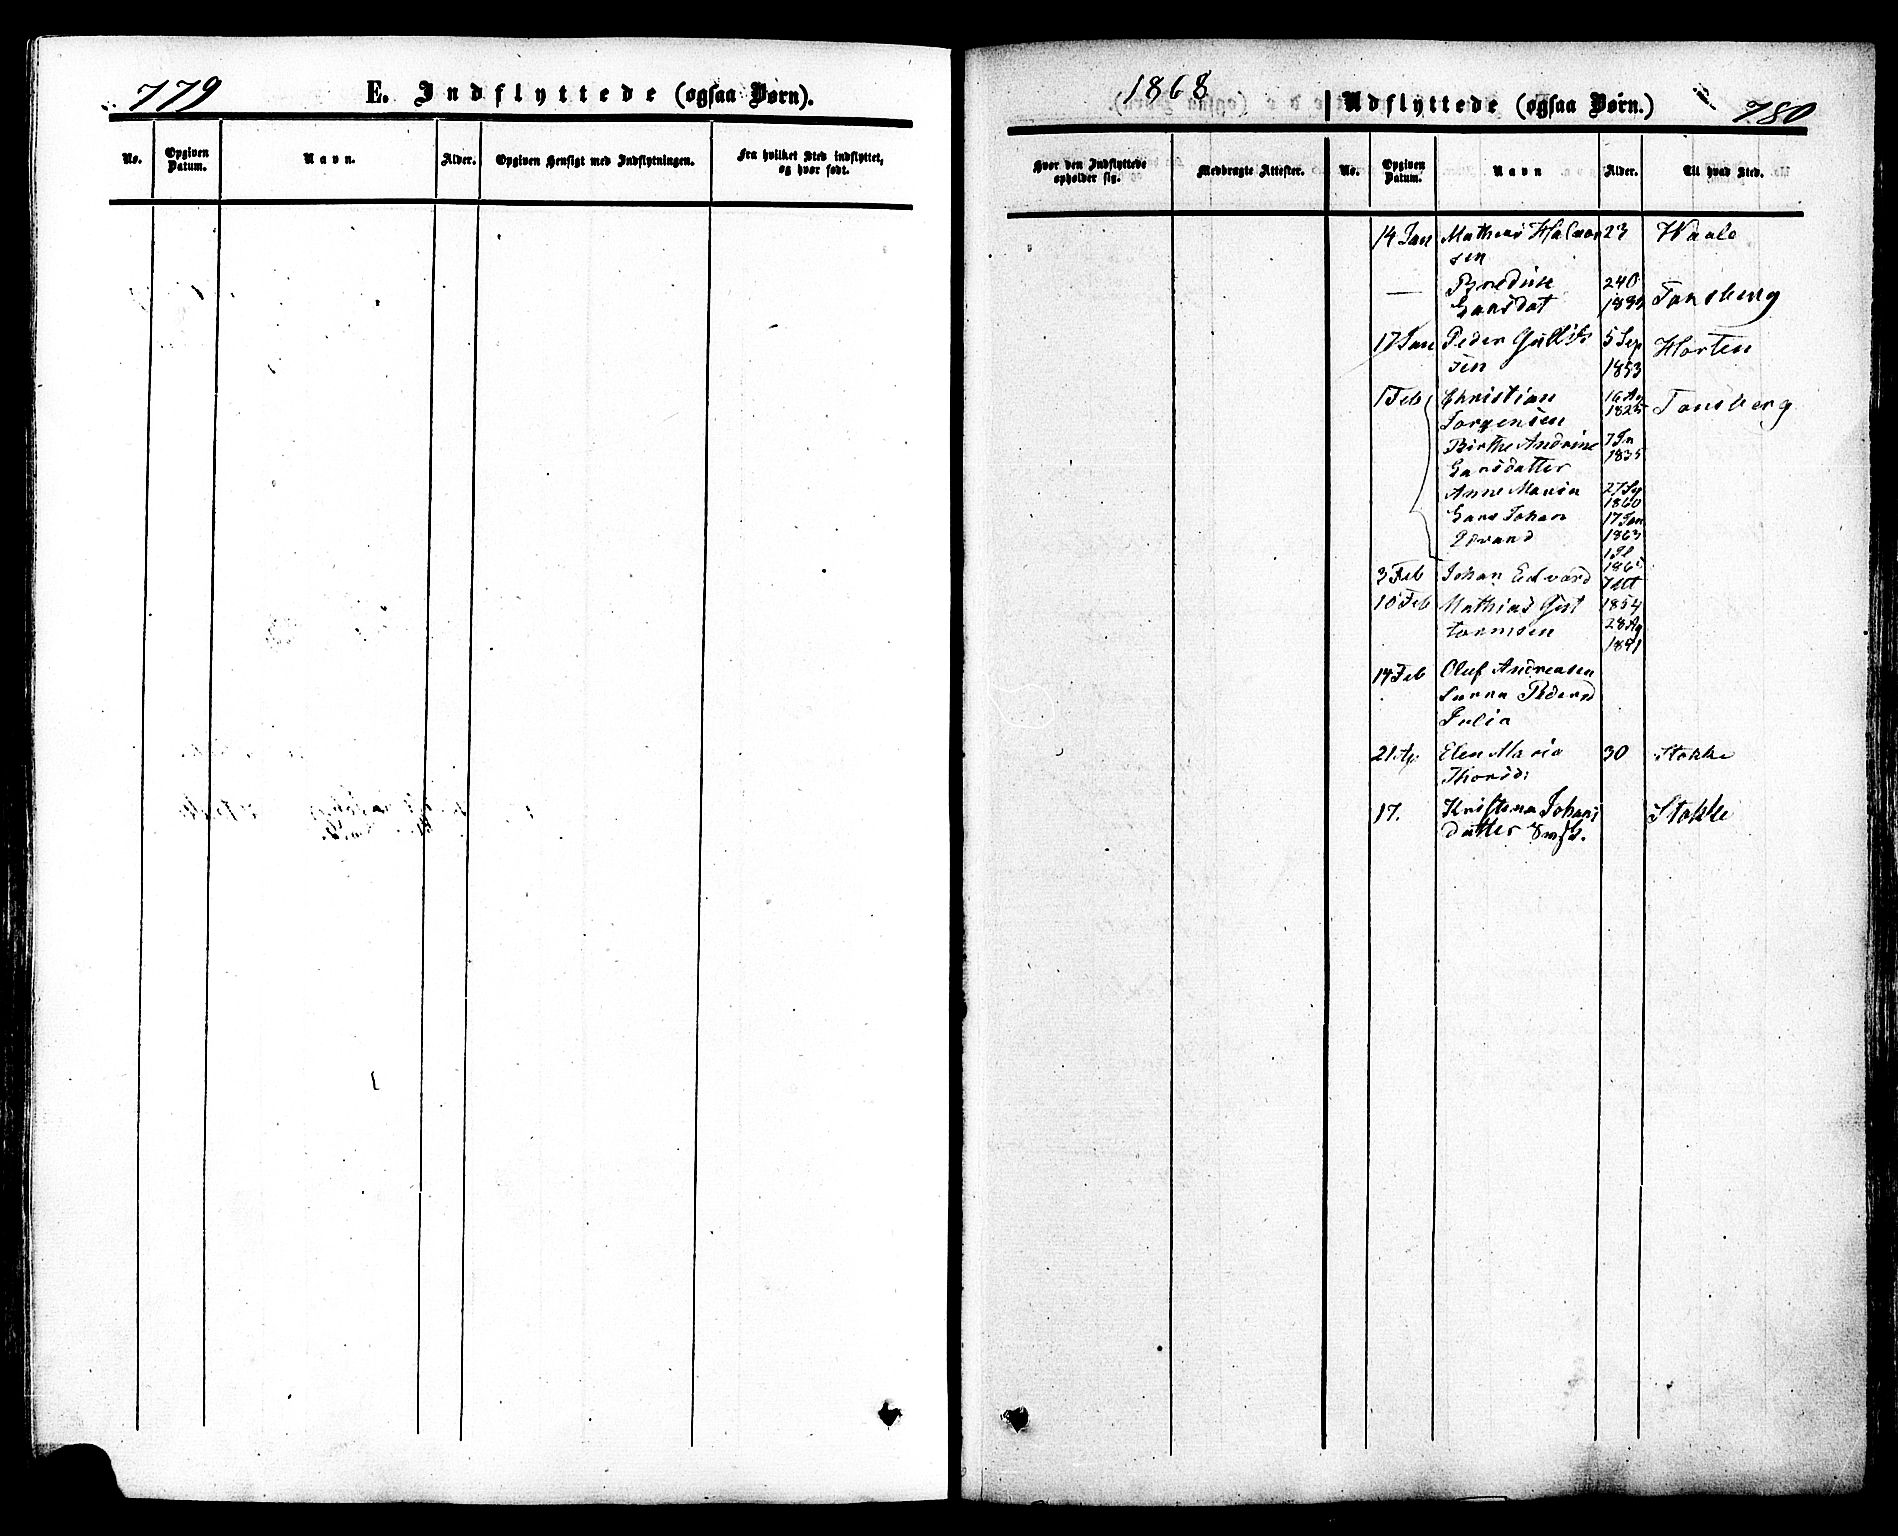 779
E. Indflyttede (ogsaa Børn).
No.
Opgiven Datum.
Navn.
Alder.
Opgiven Hensigt med Indflytningen.
Fra hvilket Sted indflyttet, og hvor født.
1868
Udflyttede (ogsaa Børn.)
780
Hvor den Indflyttede opholder sig.
Medbragte Attester.
No.
Opgiven Datum.
Navn
Alder.
Til hvad Sted.
14 Jan Mathias Halvor 23 Vaale
sen
— 240
Larsdat Tønsberg
17 Jan Peder Gulliks 5 Sep Horten
sen 1853
1 Feb Christian 16 Ag Tønsberg
Jørgensen 1825
Birthe Andrine 7 Jn
Larsdatter 1835
Anne Maria 27 Sp
1860
Lars Johan 17 Jan
1863
3 Feb Johan Edvard 7 Oct
10 Feb Mathias Gut 1854
tormsen 28 Ag
14 Feb Oluf Andreasen
Pedersd
Julia
21 Ap Elen Maria 30 Stokke
Thorsd:
17. Kristena Johans Stokke
datter